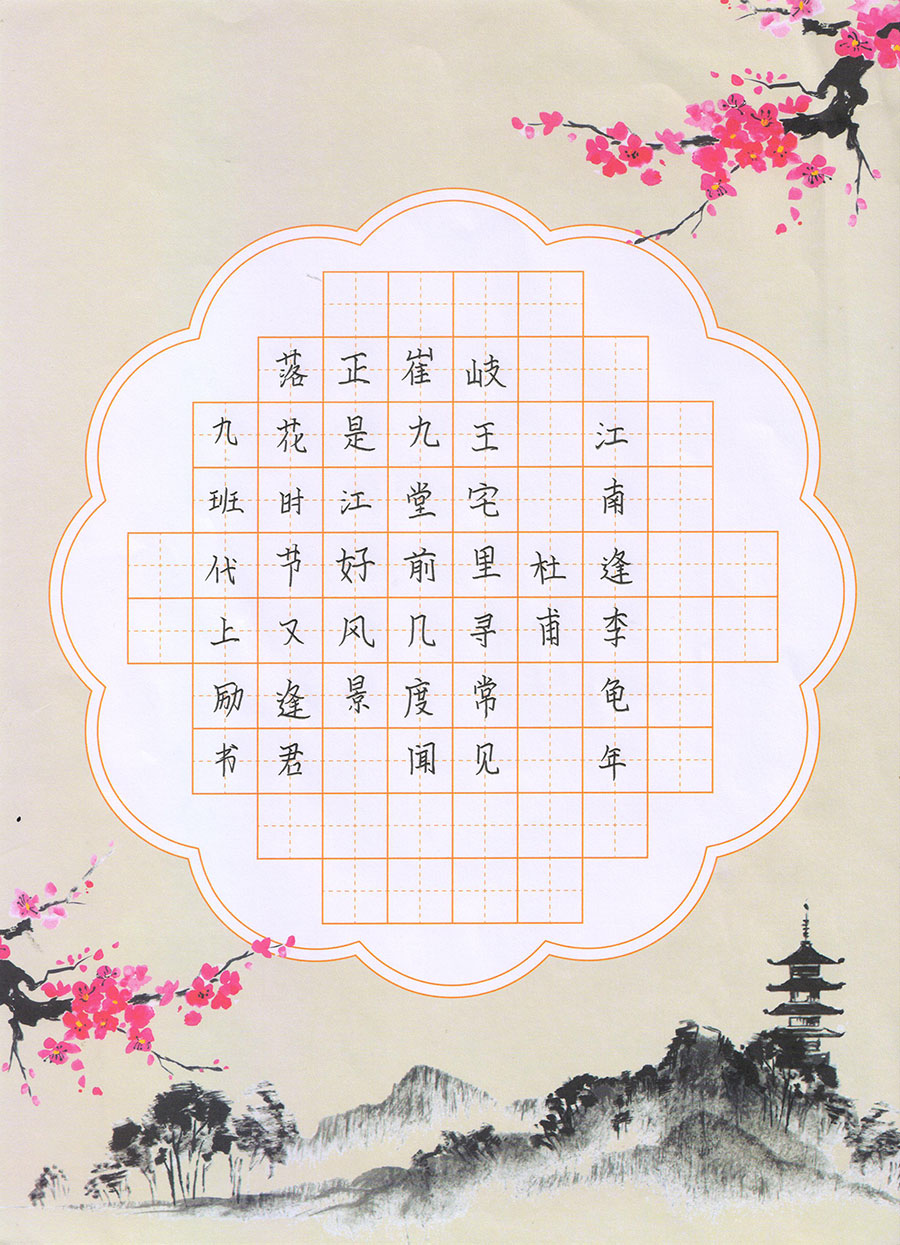 江南逢李龟年
杜甫
岐王宅里寻常见
崔九堂前几度闻
正是江好风景
落花时节又逢君
九班代上励书